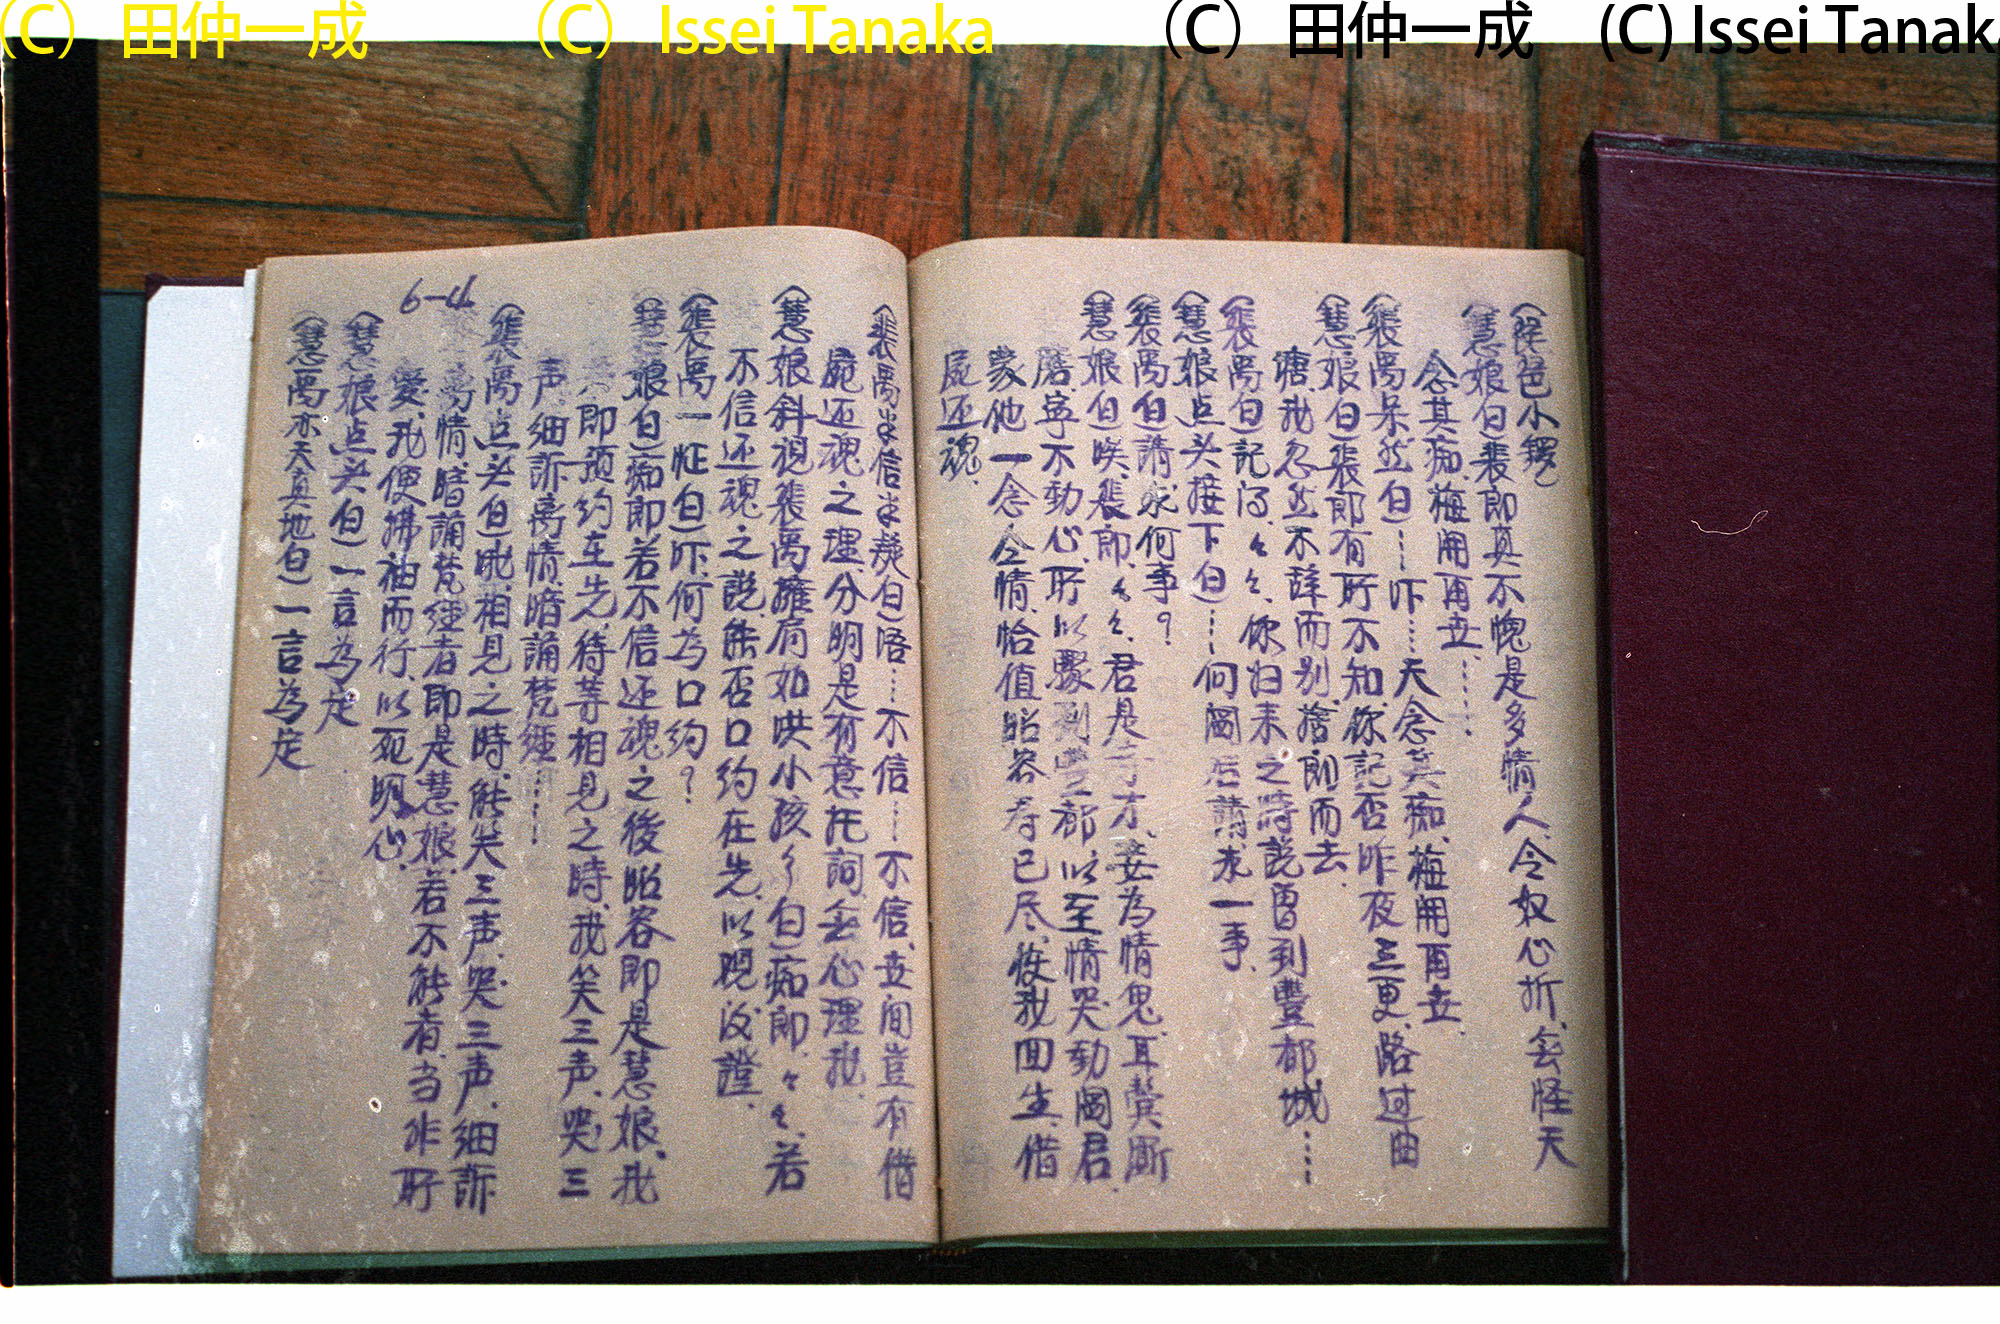 (C) 田仲一成 (C) Issei Tanaka (C) 田仲一成 (C) Issei Tanak
(慧娘白)裴郎真不愧是多情人、令奴心折、無怪天
念其痴、梅開再世……
(裴禹呆然白)…吓……天念其痴、梅開再世、
(慧娘白)裴郎有所不知、你記否昨夜三更、路过曲
塘、我忽然不辞而别、捨郎而去、
(裴禹白)記得、々々、你归来之時説曾到豐都城……
(慧娘点头接下白)…何阎君請求一事、
(裴禹白)請求何事?
(慧娘白)唉、裴郎、々々、君是才、妾為情鬼、耳鬓厮
磨、寧不動心、所以驟到豐都、以至情哭動阎君、
蒙他一念仝情、恰值昭容寿已尽、使我回生、借
屍还魂、
(裴禹半信半疑白)唔…不信…不信、世间豈有借
屍还魂之理、分明是有意托詞、無心理我、
(慧娘斜視裴禹擁肩如哄小孩子白)痴郎、々々、若
不信还魂之説、能否口约在先、以覌後證、
(裴禹一怔白)吓、何為口约?
(慧娘白)痴郎若不信还魂之後昭容即是慧娘、我
即预约在先、待等相見之時、我笑三声、哭三
声、細訴离情、暗誦梵經……
(裴禹点头白)吡、相見之時、能笑三声、哭三声、細訴
离情、暗誦梵經者、即是慧娘、若不能者、当非所
愛、我便拂袖而行、以死明心、
6-4
(慧娘点头白)一言為定
(慧、禹亦天真地白)一言為定